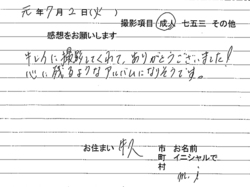 元年7月2日(火)
撮影項目 成人 七五三 その他
感想をお願いします
キレイに撮影してくれて、ありがとうございました!
心に残るようなアルバムになりそうです。
お住まい 牛久 市 町 村 お名前 イニシャルで
m. i